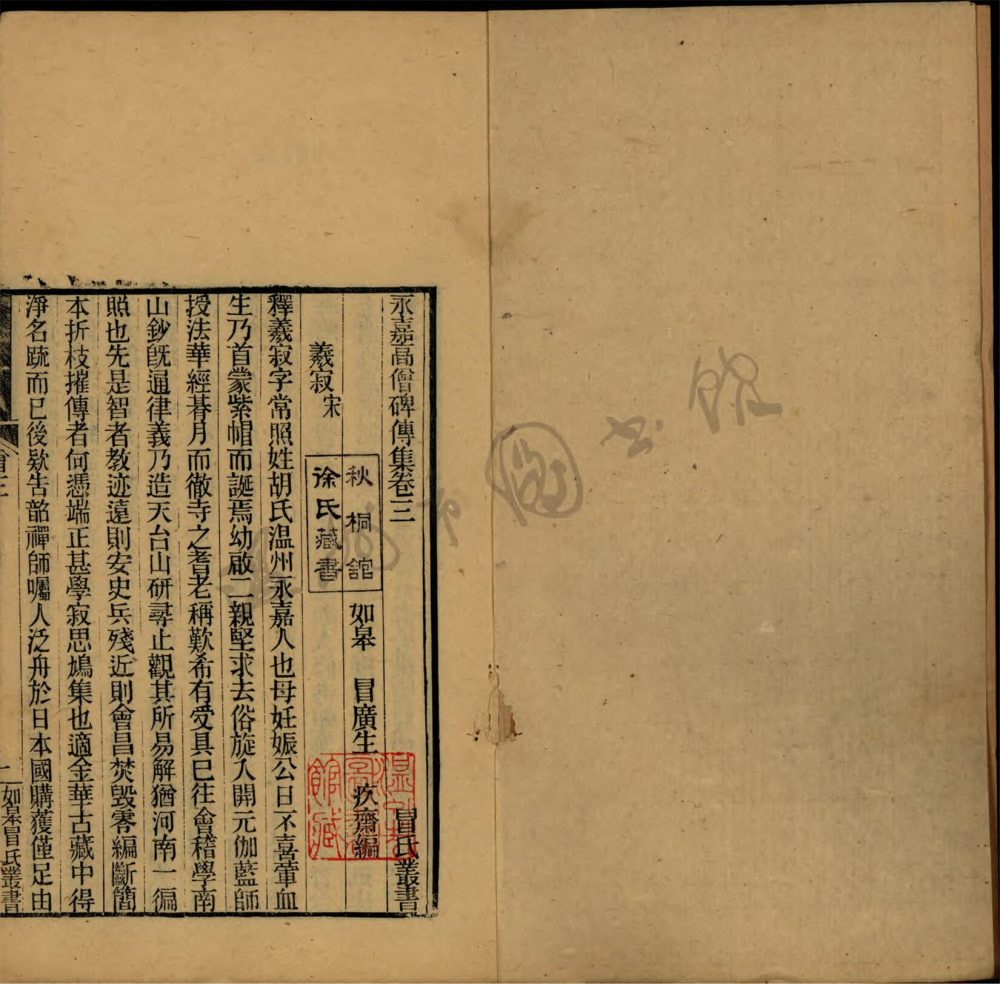 永嘉高僧碑傳集卷三 冒氏叢書
如皋 冒廣生 疚齋編
秋桐館
徐氏藏書
羲寂宋
釋羲寂字常照姓胡氏温州永嘉人也母妊娠公日不喜葷血
生乃首蒙紫帽而誕焉幼啟二親堅求去俗旋入開元伽藍師
授法華經朞月而徹寺之耆老稱歎希有受具已往會稽學南
山鈔旣通律義乃造天台山研尋止觀其所易解猶河南一徧
照也先是智者教迹遠則安史兵殘近則會昌焚毀零編斷簡
本折枝摧傳者何憑端正甚學寂思鳩集也適金華古藏中得
淨名疏而已後欵告韶禪師囑人泛舟於日本國購獲僅足由
一 如皋冒氏叢書
温州市圖書館藏
圖書館